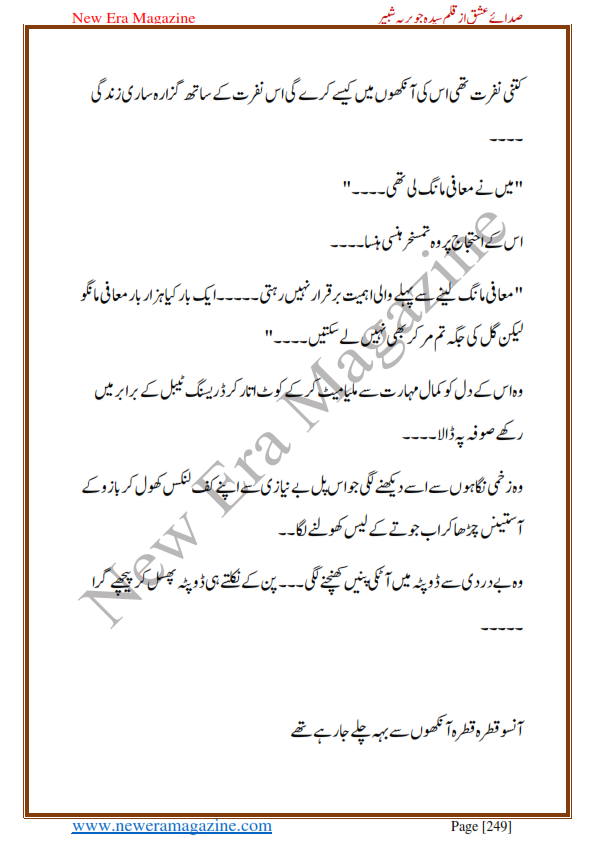 New Era Magazine
صدائے عشق از قلم سیدہ جویریہ شبیر
کتنی نفرت تھی اس کی آنکھوں میں کیسے کرے گی اس نفرت کے ساتھ گزارہ ساری زندگی
۔۔۔۔
"میں نے معافی مانگ لی تھی۔۔۔۔"
اس کے احتجاج پر وہ تمسخر ہنسی ہنسا۔۔۔۔
"معافی مانگ لینے سے پہلے والی اہمیت برقرار نہیں رہتی۔۔۔۔۔ایک بار کیا ہزار بار معافی مانگو
لیکن گل کی جگہ تم مر کر بھی نہیں لے سکتیں۔۔۔۔"
وہ اس کے دل کو کمال مہارت سے ملیامیٹ کر کے کوٹ اتار کر ڈریسنگ ٹیبل کے برابر میں
رکھے صوفہ پہ ڈالا۔۔۔۔
وہ زخمی نگاہوں سے اسے دیکھنے لگی جو اس پل بے نیازی سے اپنے کف لنکس کھول کر بازو کے
آستینس چڑھا کر اب جوتے کے لیس کھولنے لگا۔۔
وہ بے دردی سے ڈوپٹہ میں آٹکی پنیں کھنچنے لگی۔۔۔پن کے نکلتے ہی ڈوپٹہ پھسل کر پیچھے گرا
۔۔۔۔۔
آنسو قطرہ قطرہ آنکھوں سے بہہ چلے جا رہے تھے
New Era Magazine
www.neweramagazine.com
Page [249]